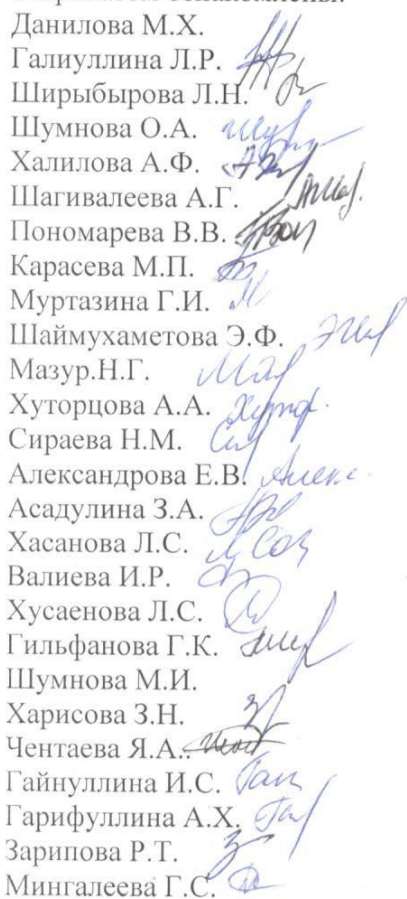 Данилова М.Х.
Галиуллина Л.Р.
Ширыбырова Л.Н.
Шумнова О.А.
Халилова А.Ф.
Шагивалеева А.Г.
Пономарева В.В.
Карасева М.П.
Муртазина Г.И.
Шаймухаметова Э.Ф.
Мазур.Н.Г.
Хуторцова А.А.
Сираева Н.М.
Александрова Е.В.
Асадулина З.А.
Хасанова Л.С.
Валиева И.Р.
Хусаенова Л.С.
Гильфанова Г.К.
Шумнова М.И.
Харисова З.Н.
Чентаева Я.А..
Гайнуллина И.С.
Гарифуллина А.Х.
Зарипова Р.Т.
Мингалеева Г.С.